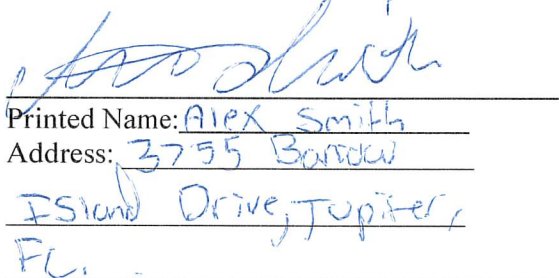 Printed Name: Alex Smith
Address: 3755
Island Drive, Jupiter,
FL.